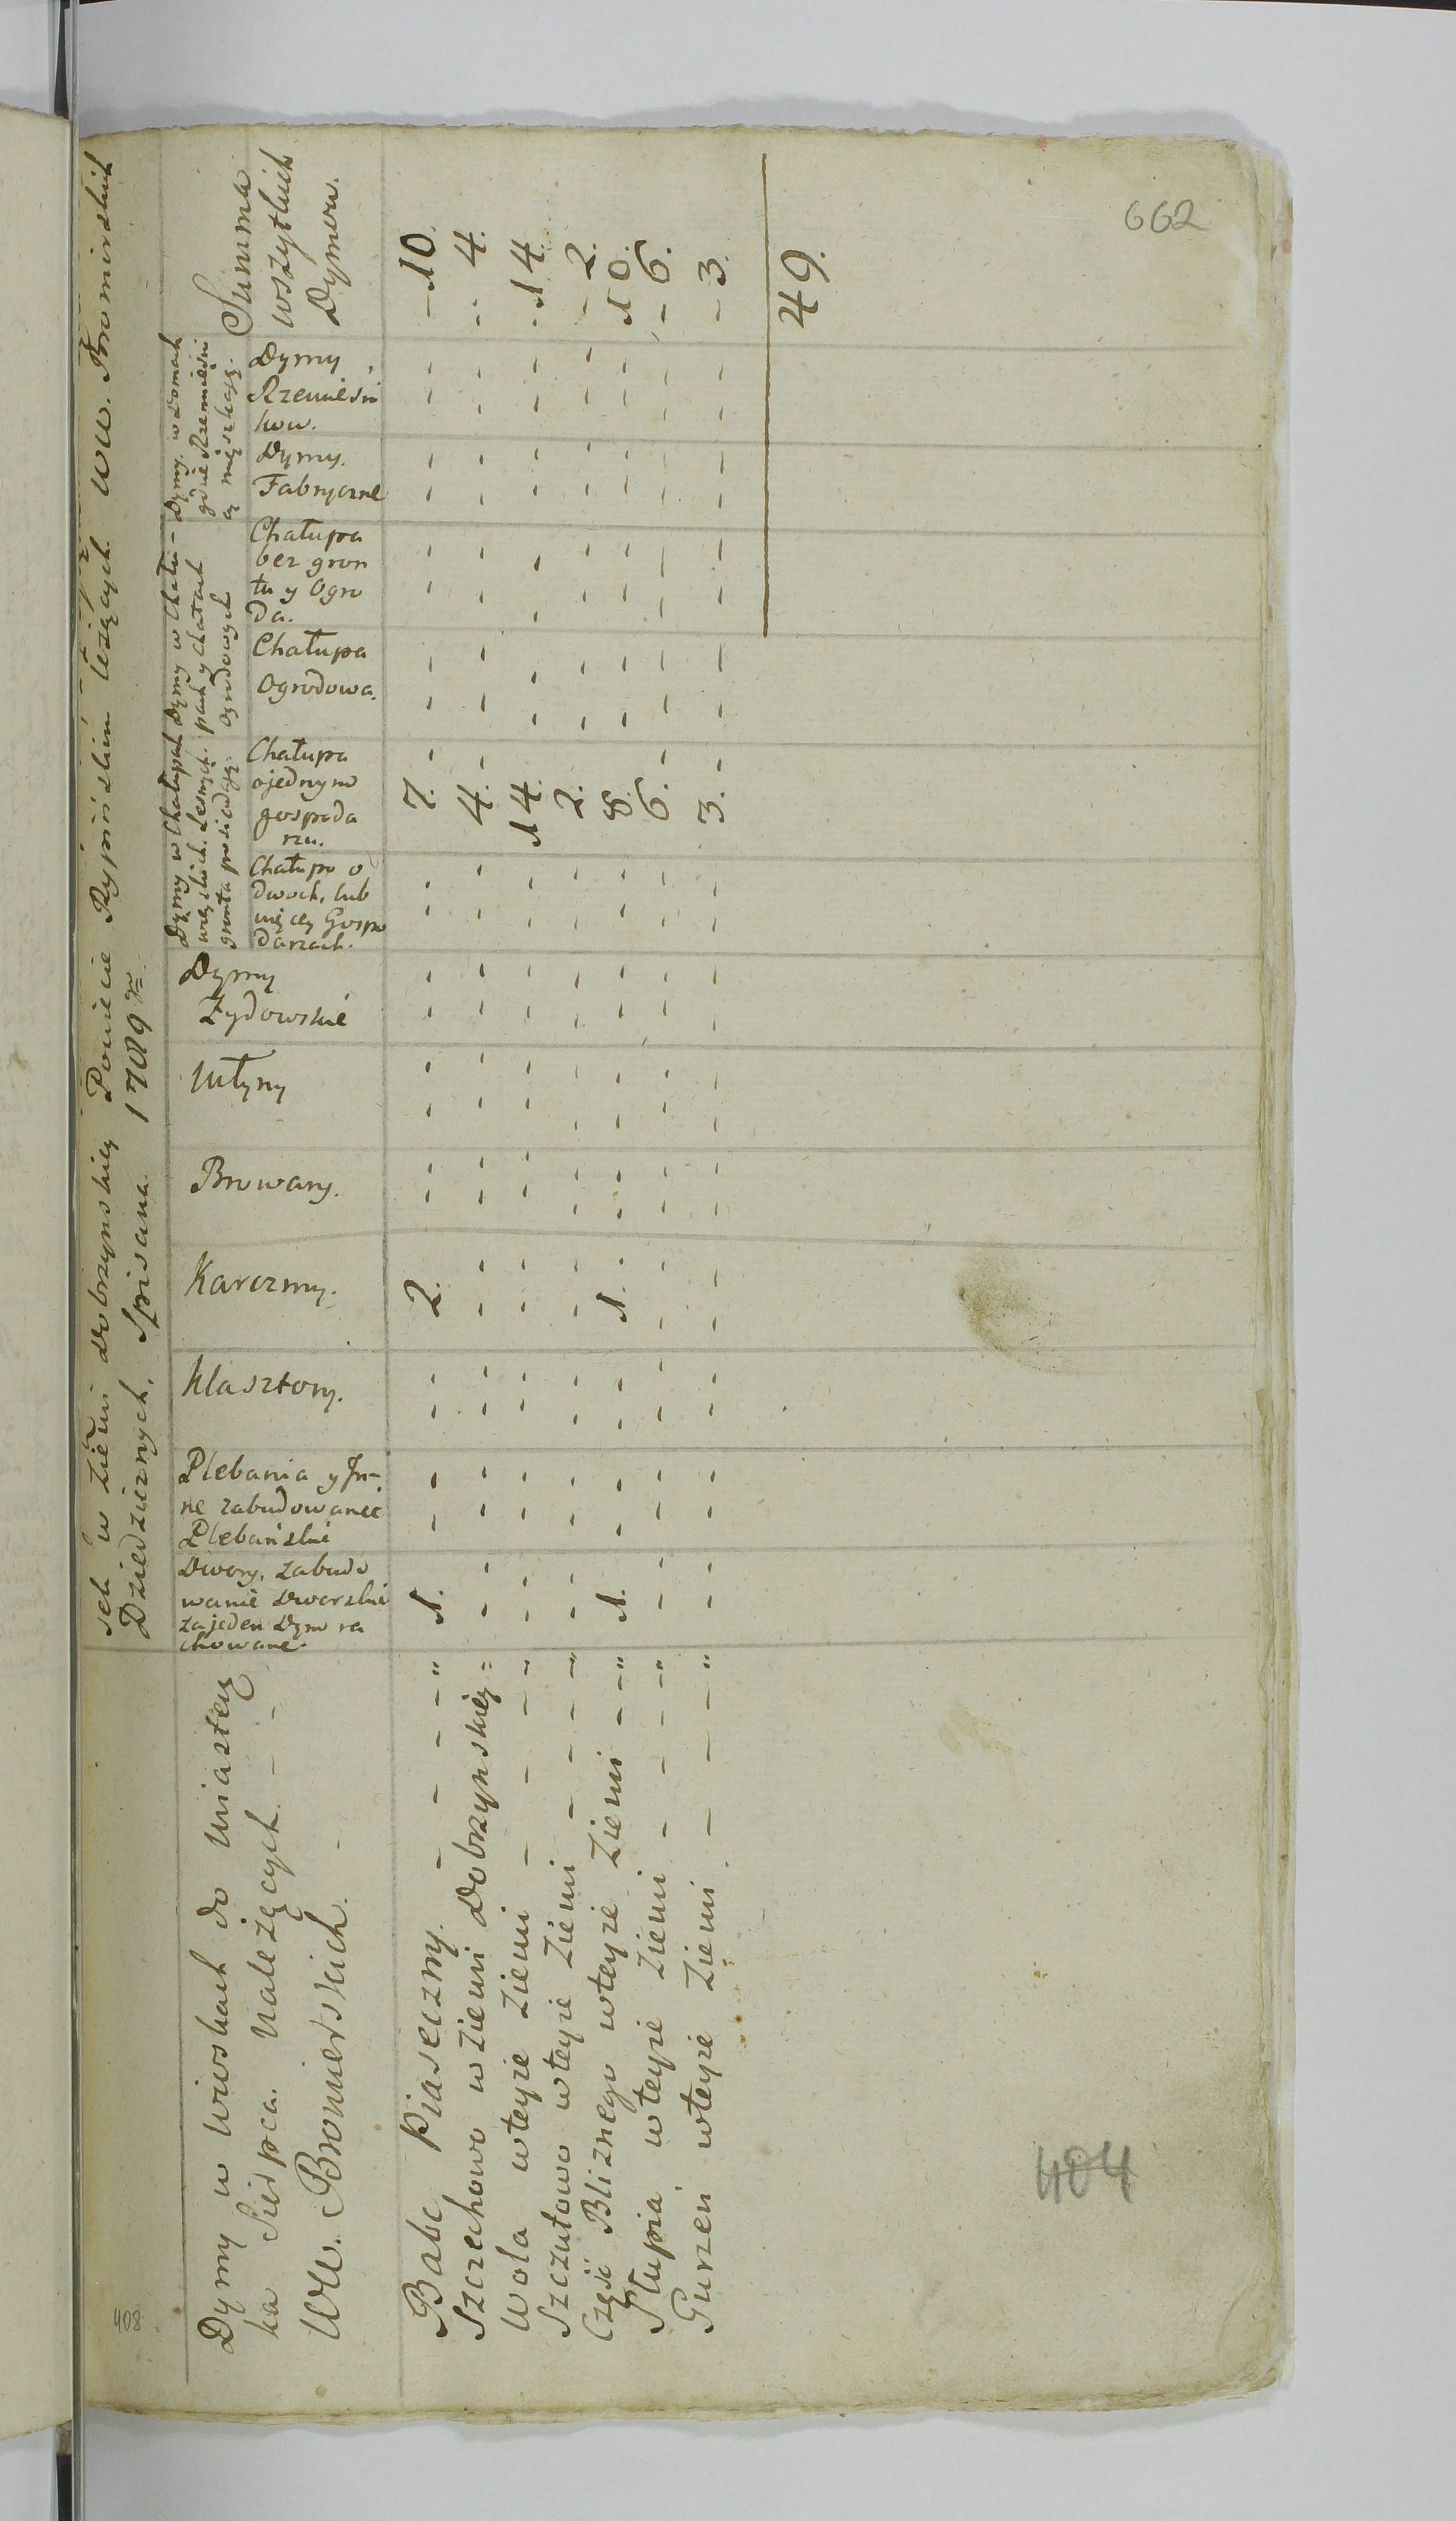 sek w Ziemi Dobrzynskiey Powiecie Rypinskim leżących WW. Bromirskich
Dziedzicznych, Spisana. 1789
Dymy w Wioskach do Miastecz
ka Sierpca. Należących - -
WW. Bromierskich. -
Dwory, zabudo
wanie Dworskie
za jeden Dym ra
chowane.
Plebania y In-
ne zabudowanie
Plebańskie
Klasztory.
Karczmy.
Browary.
Młyny
Dymy
Żydowskie
Dymy w Chałupach
wieyskich. Lesnych.
gronta posiadają.
Chałupa o
dwoch, lub
więcey Gospo
darzach.
Chałupa
o jednym
gospoda
rzu.
Dymy w Chału-
pach y Chatach
Ogrodowych
Chałupa
Ogrodowa.
Chałupa
bez gron
tu y Ogro
da.
Dymy. w Domach
gdzie Rzemieśni
cy mięszkają.
Dymy.
Fabryczne
Dymy
Rzemieśni
kow.
Summa
wszytkich
Dymow.
Babc Piaseczny. - - - - " 1. 2. 7. - 10.
Szczechowo w Ziemi Dobrzynskiey = 4. 4.
Wola w teyże Ziemi - - - - 14. 14.
Szczutowo w teyże Ziemi - - - - " 2. - 2.
Częśc Bliznego w teyże Ziemi - - " 1. 1. 8. 10.
Słupia w teyże Ziemi - - - - " 6. - 6.
Gurzen w teyże Ziemi - - - - " 3. - 3.
49.
662
404
408